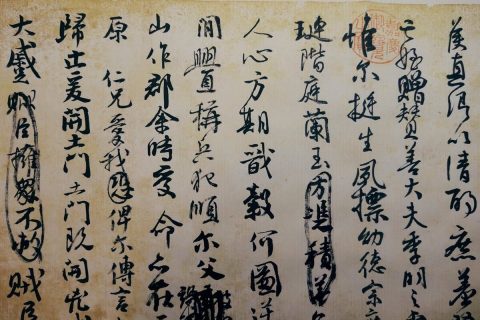 侯真卿以清酌庶羞
亡姪贈贊善大夫季明之
惟尔挺生夙標幼德宗
璉階庭蘭玉方憑積善
人心方期戩穀何圖逆
間釁稱兵犯順尔父
山作郡余時受命亦在平
原仁兄愛我恐俾尔傳言
歸止爰開土門土門既開凶
大蹙賊臣擁衆不救賊臣